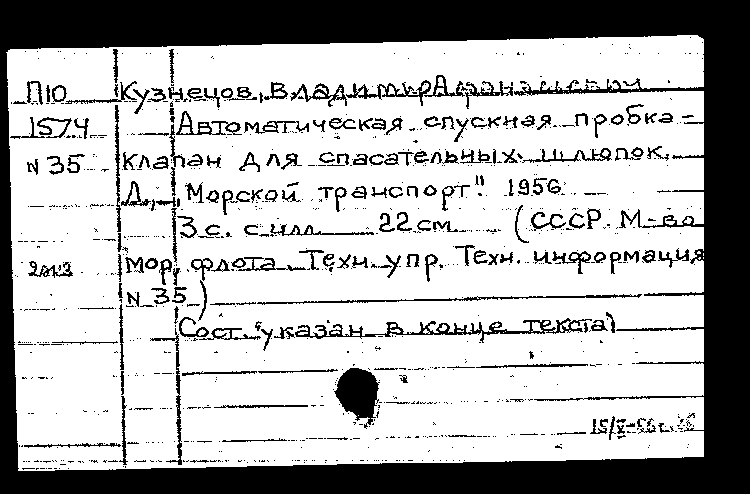 П10 Кузнецов, Владимир Афанасьевич
1574 Автоматическая спускная пробка-
N 35 клапан для спасательных шлюпок.
Л., „Морской транспорт". 1956
3 с. с илл. 22 см. (СССР. М-во
2экз мор. флота. Техн. упр. Техн. информация
N 35)
Сост. указан в конце текста)
15/X-56г.